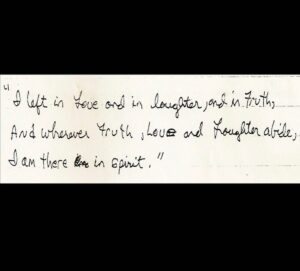 "I left in Love and in laughter, and in Truth,
And wherever Truth, Love and Laughter abide,
I am there in Spirit."